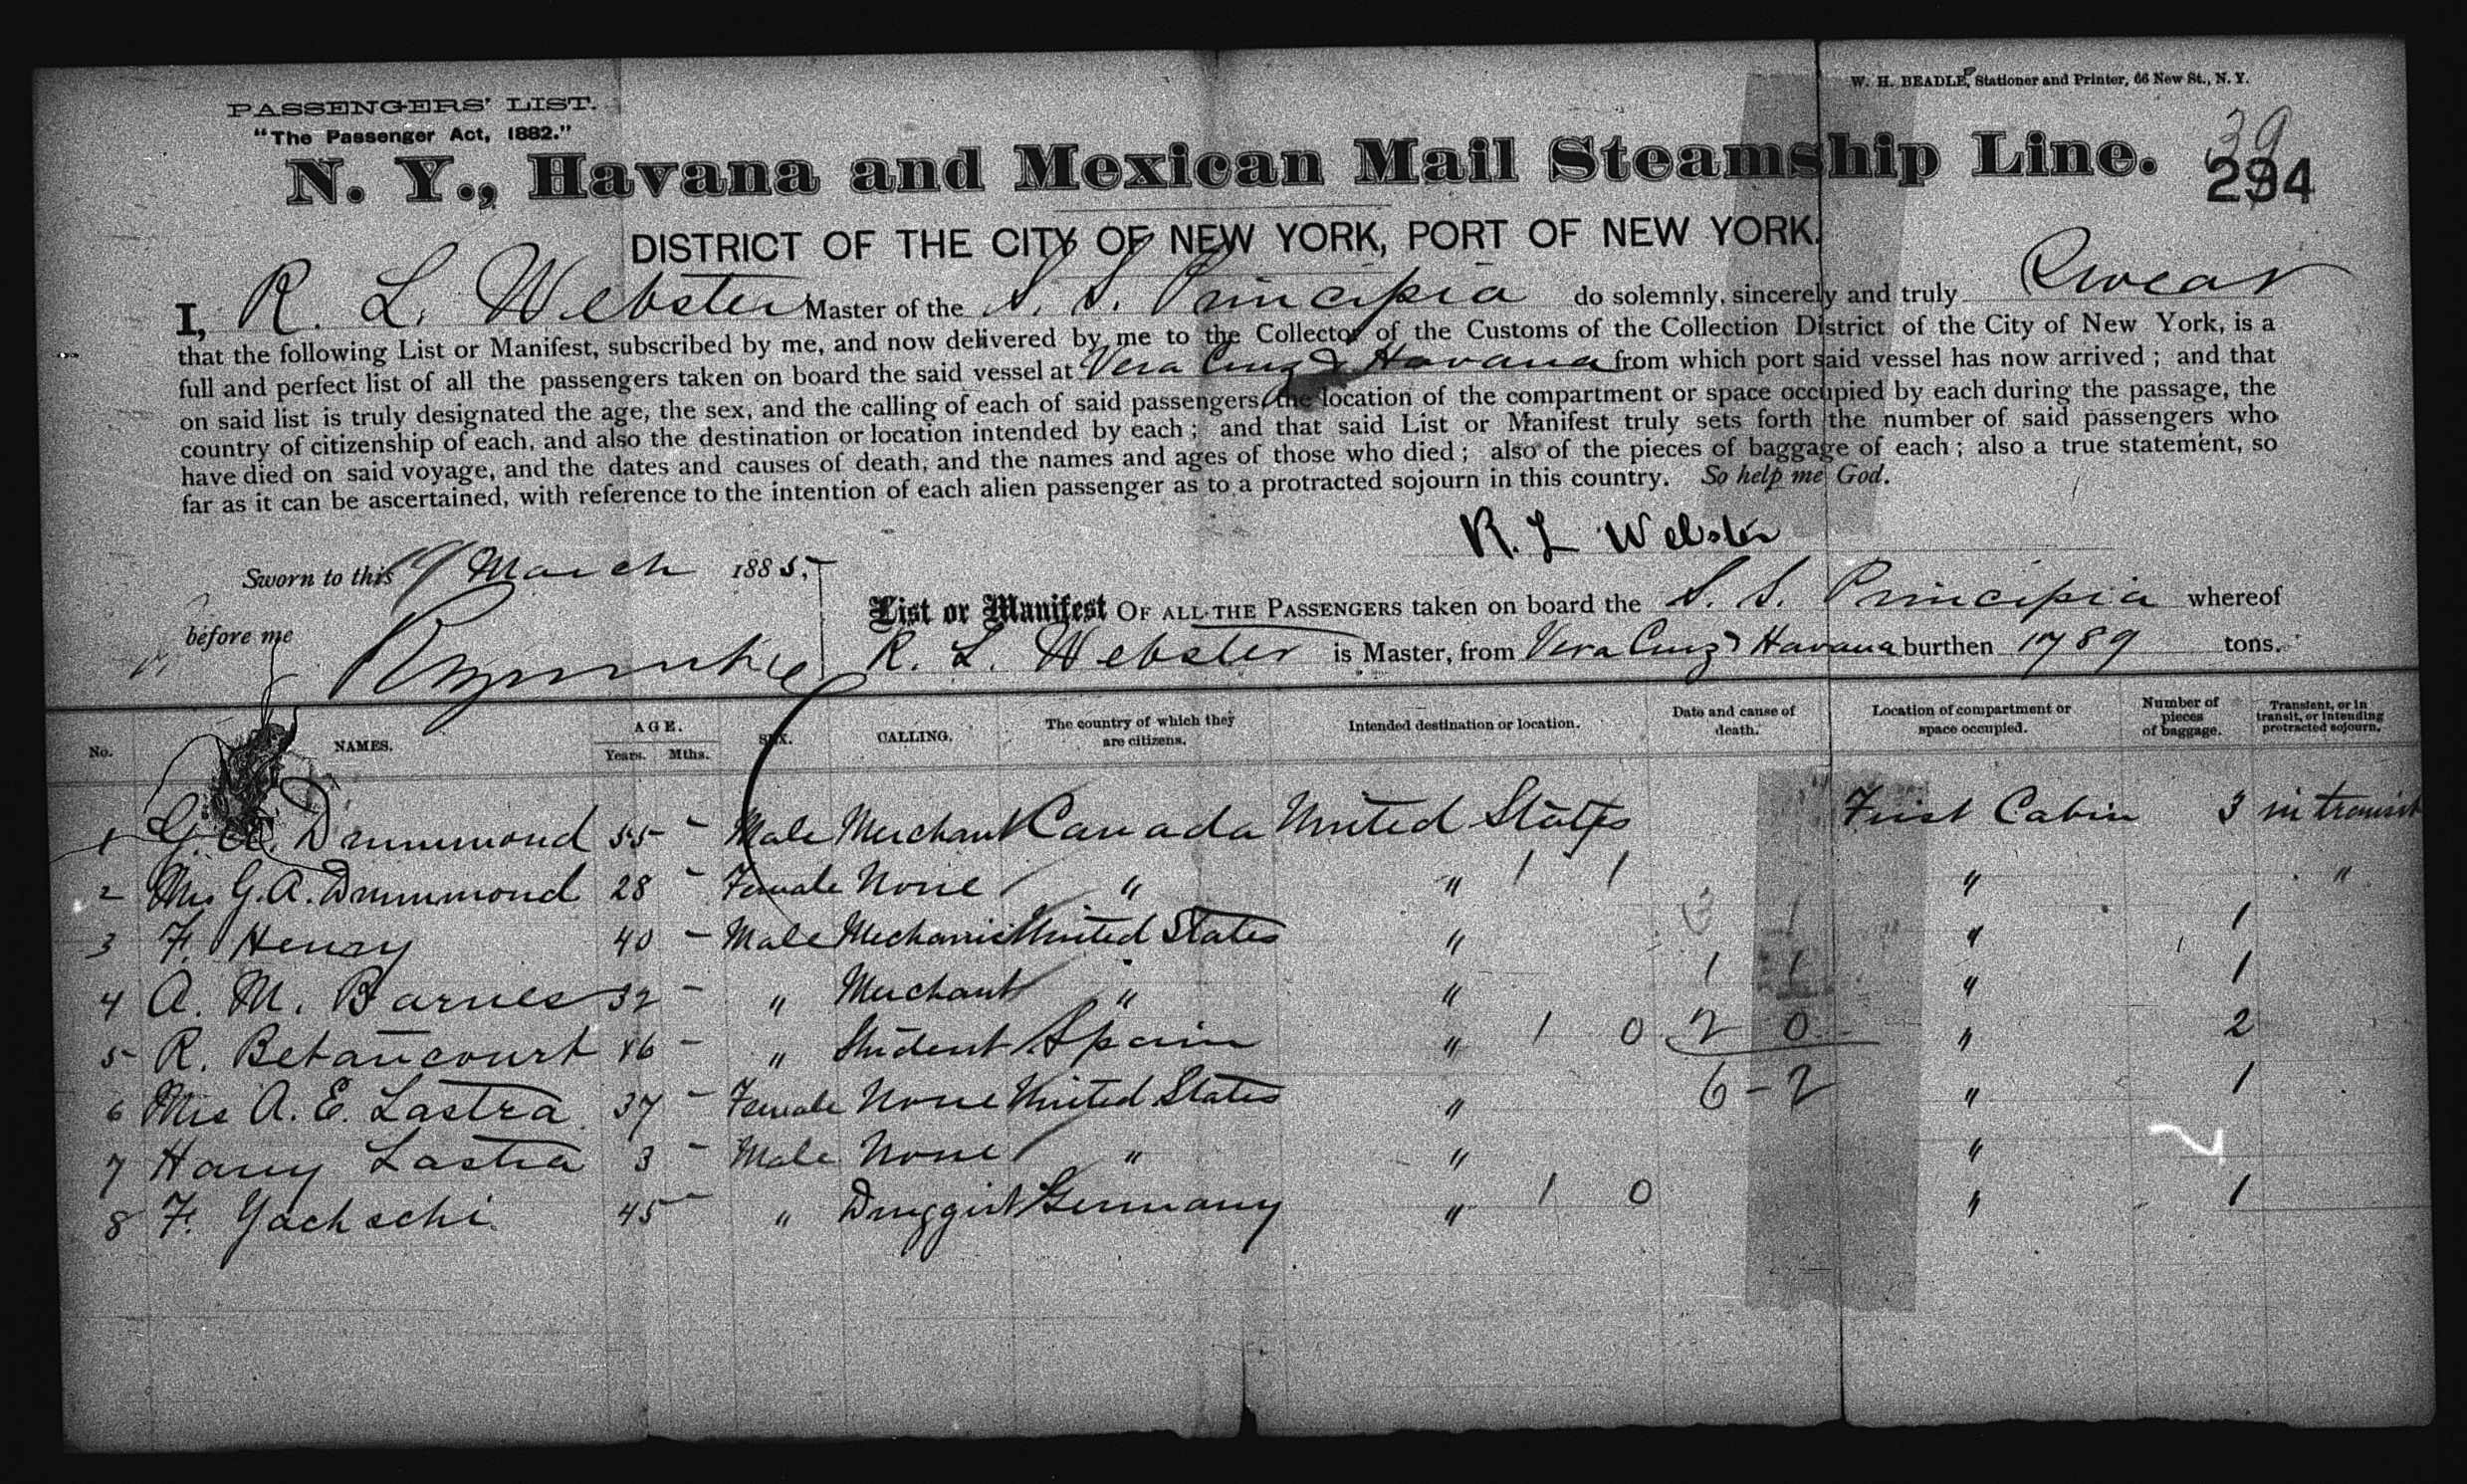 W. H. BEADLE, Stationer and Printer, 66 New St., N. Y.
PASSENGERS' LIST.
"The Passenger Act, 1882."
39
N. Y., Havana and Mexican Mail Steamship Line. 294
DISTRICT OF THE CITY OF NEW YORK, PORT OF NEW YORK.
I, R. L. Webster Master of the S. S. Principia do solemnly, sincerely and truly Swear
that the following List or Manifest, subscribed by me, and now delivered by me to the Collector of the Customs of the Collection District of the City of New York, is a
full and perfect list of all the passengers taken on board the said vessel at Vera Cruz & Havana from which port said vessel has now arrived; and that
on said list is truly designated the age, the sex, and the calling of each of said passengers, the location of the compartment or space occupied by each during the passage, the
country of citizenship of each, and also the destination or location intended by each; and that said List or Manifest truly sets forth the number of said passengers who
have died on said voyage, and the dates and causes of death, and the names and ages of those who died; also of the pieces of baggage of each; also a true statement, so
far as it can be ascertained, with reference to the intention of each alien passenger as to a protracted sojourn in this country. So help me God.
R. L Webster
Sworn to this 19 March 1885,
before me
List or Manifest OF ALL THE PASSENGERS taken on board the S. S. Principia whereof
R. L. Webster is Master, from Vera Cruz & Havana burthen 1789 tons.
No. NAMES. AGE. Years. Mths. SEX. CALLING. The country of which they are citizens. Intended destination or location. Date and cause of death. Location of compartment or space occupied. Number of pieces of baggage. Transient, or in transit, or intending protracted sojourn.
1 G. A. Drummond 55 - Male Merchant Canada United States First Cabin 3 in transit
2 Mrs G. A. Drummond 28 - Female None " " 1 1 " "
3 F. Henry 40 - Male Mechanic United States " 3 1 " 1
4 A. M. Barnes 32 - " Merchant " " 1 1 " 1
5 R. Betancourt 16 - " Student Spain " 1 0 2 0 " 2
6 Mrs A. E. Lastra 37 - Female None United States " 6 - 2 " 1
7 Harry Lastra 3 - Male None " " "
8 F. Yachschi 45 - " Druggist Germany " 1 0 " 1